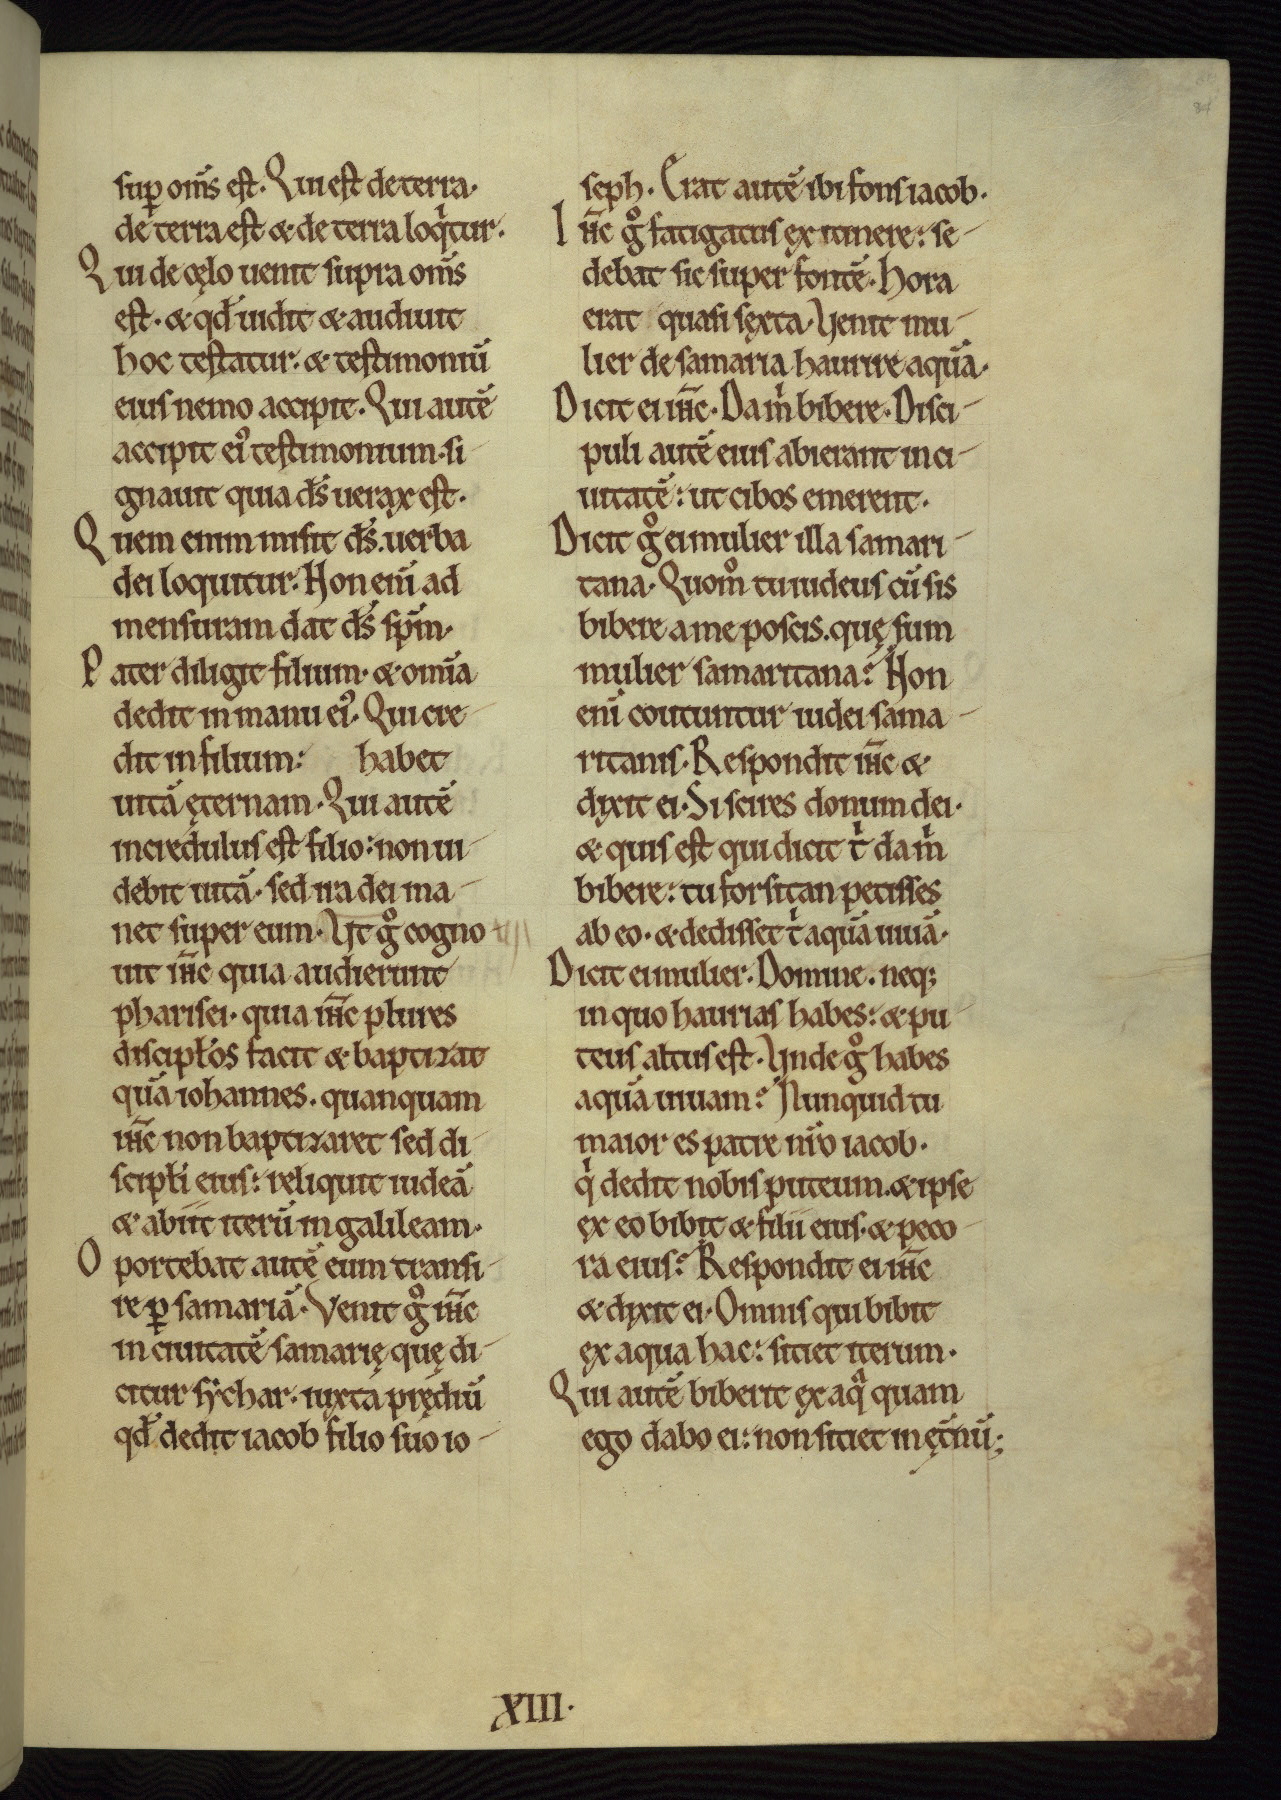 84
sup̱ om̄s est. Qui est de terra.
de terra est & de terra loqͥtur.
Qui de cęlo uenit supra om̄s
est. & qd̄ uidit & audiuit
hoc testatur. & testimoniū
eius nemo accipit. Qui autē
accipit ei᷒ testimonium. si-
gnauit quia d̄s uerax est.
Quem enim misit d̄s. uerba
dei loquitur. Non eni̅ ad
mensuram dat d̄s sp̄m.
Pater diligit filium. & om̄ia
dedit in manu ei᷒. Qui cre-
dit in filium: habet
uitā ęternam. Qui autē
incredulus est filio: non ui-
debit uitā. sed ira dei ma-
net super eum. Ut gͦ cogno-
uit ih̄c quia audierunt
pharisei. quia ih̄c plures
discipłos facit & baptizat
quā iohannes. quanquam
ih̄c non baptizaret sed di-
scipłi eius: reliquit iudeā
& abiit iterū in galileam.
Oportebat autē eum transi-
re ꝑ samariā. Venit gͦ ih̄c
in ciuitatē samarię quę di-
citur sychar. iuxta prędiū
qd̄ dedit iacob filio suo io-
seph. Erat autē ibi fons iacob.
Ih̄c gͦ fatigatus ex itinere: se-
debat sic super fontē. Hora
erat quasi sexta. Uenit mu-
lier de samaria haurire aquā.
Dicit ei ih̄c. Da mͥ bibere. Disci-
puli autē eius abierant in ci-
uitatē: ut cibos emerent.
Dicit gͦ ei mulier illa samari-
tana. Quomͦ tu iudeus cū sis
bibere a me poscis. quę sum
mulier samaritana? Non
eni̅ coutuntur iudei sama-
ritanis. Respondit ih̄c &
dixit ei. Si scires donum dei.
& quis est qui dicit tͥ da mͥ
bibere: tu forsitan petisses
ab eo. & dedisset tͥ aquā uiuā.
Dicit ei mulier. Domine. neq;
in quo haurias habes: & pu-
teus altus est. Unde gͦ habes
aquā uiuam? Nunquid tu
maior es patre nr̄o iacob.
qͥ dedit nobis puteum. & ipse
ex eo bibit & filii eius. & peco-
ra eius? Respondit ei ih̄c
& dixit ei. Omnis qui bibit
ex aqua hac: sitiet iterum.
Qui autē biberit ex aqͣ quam
ego dabo ei: non sitiet in ęt̄nū;
XIII.